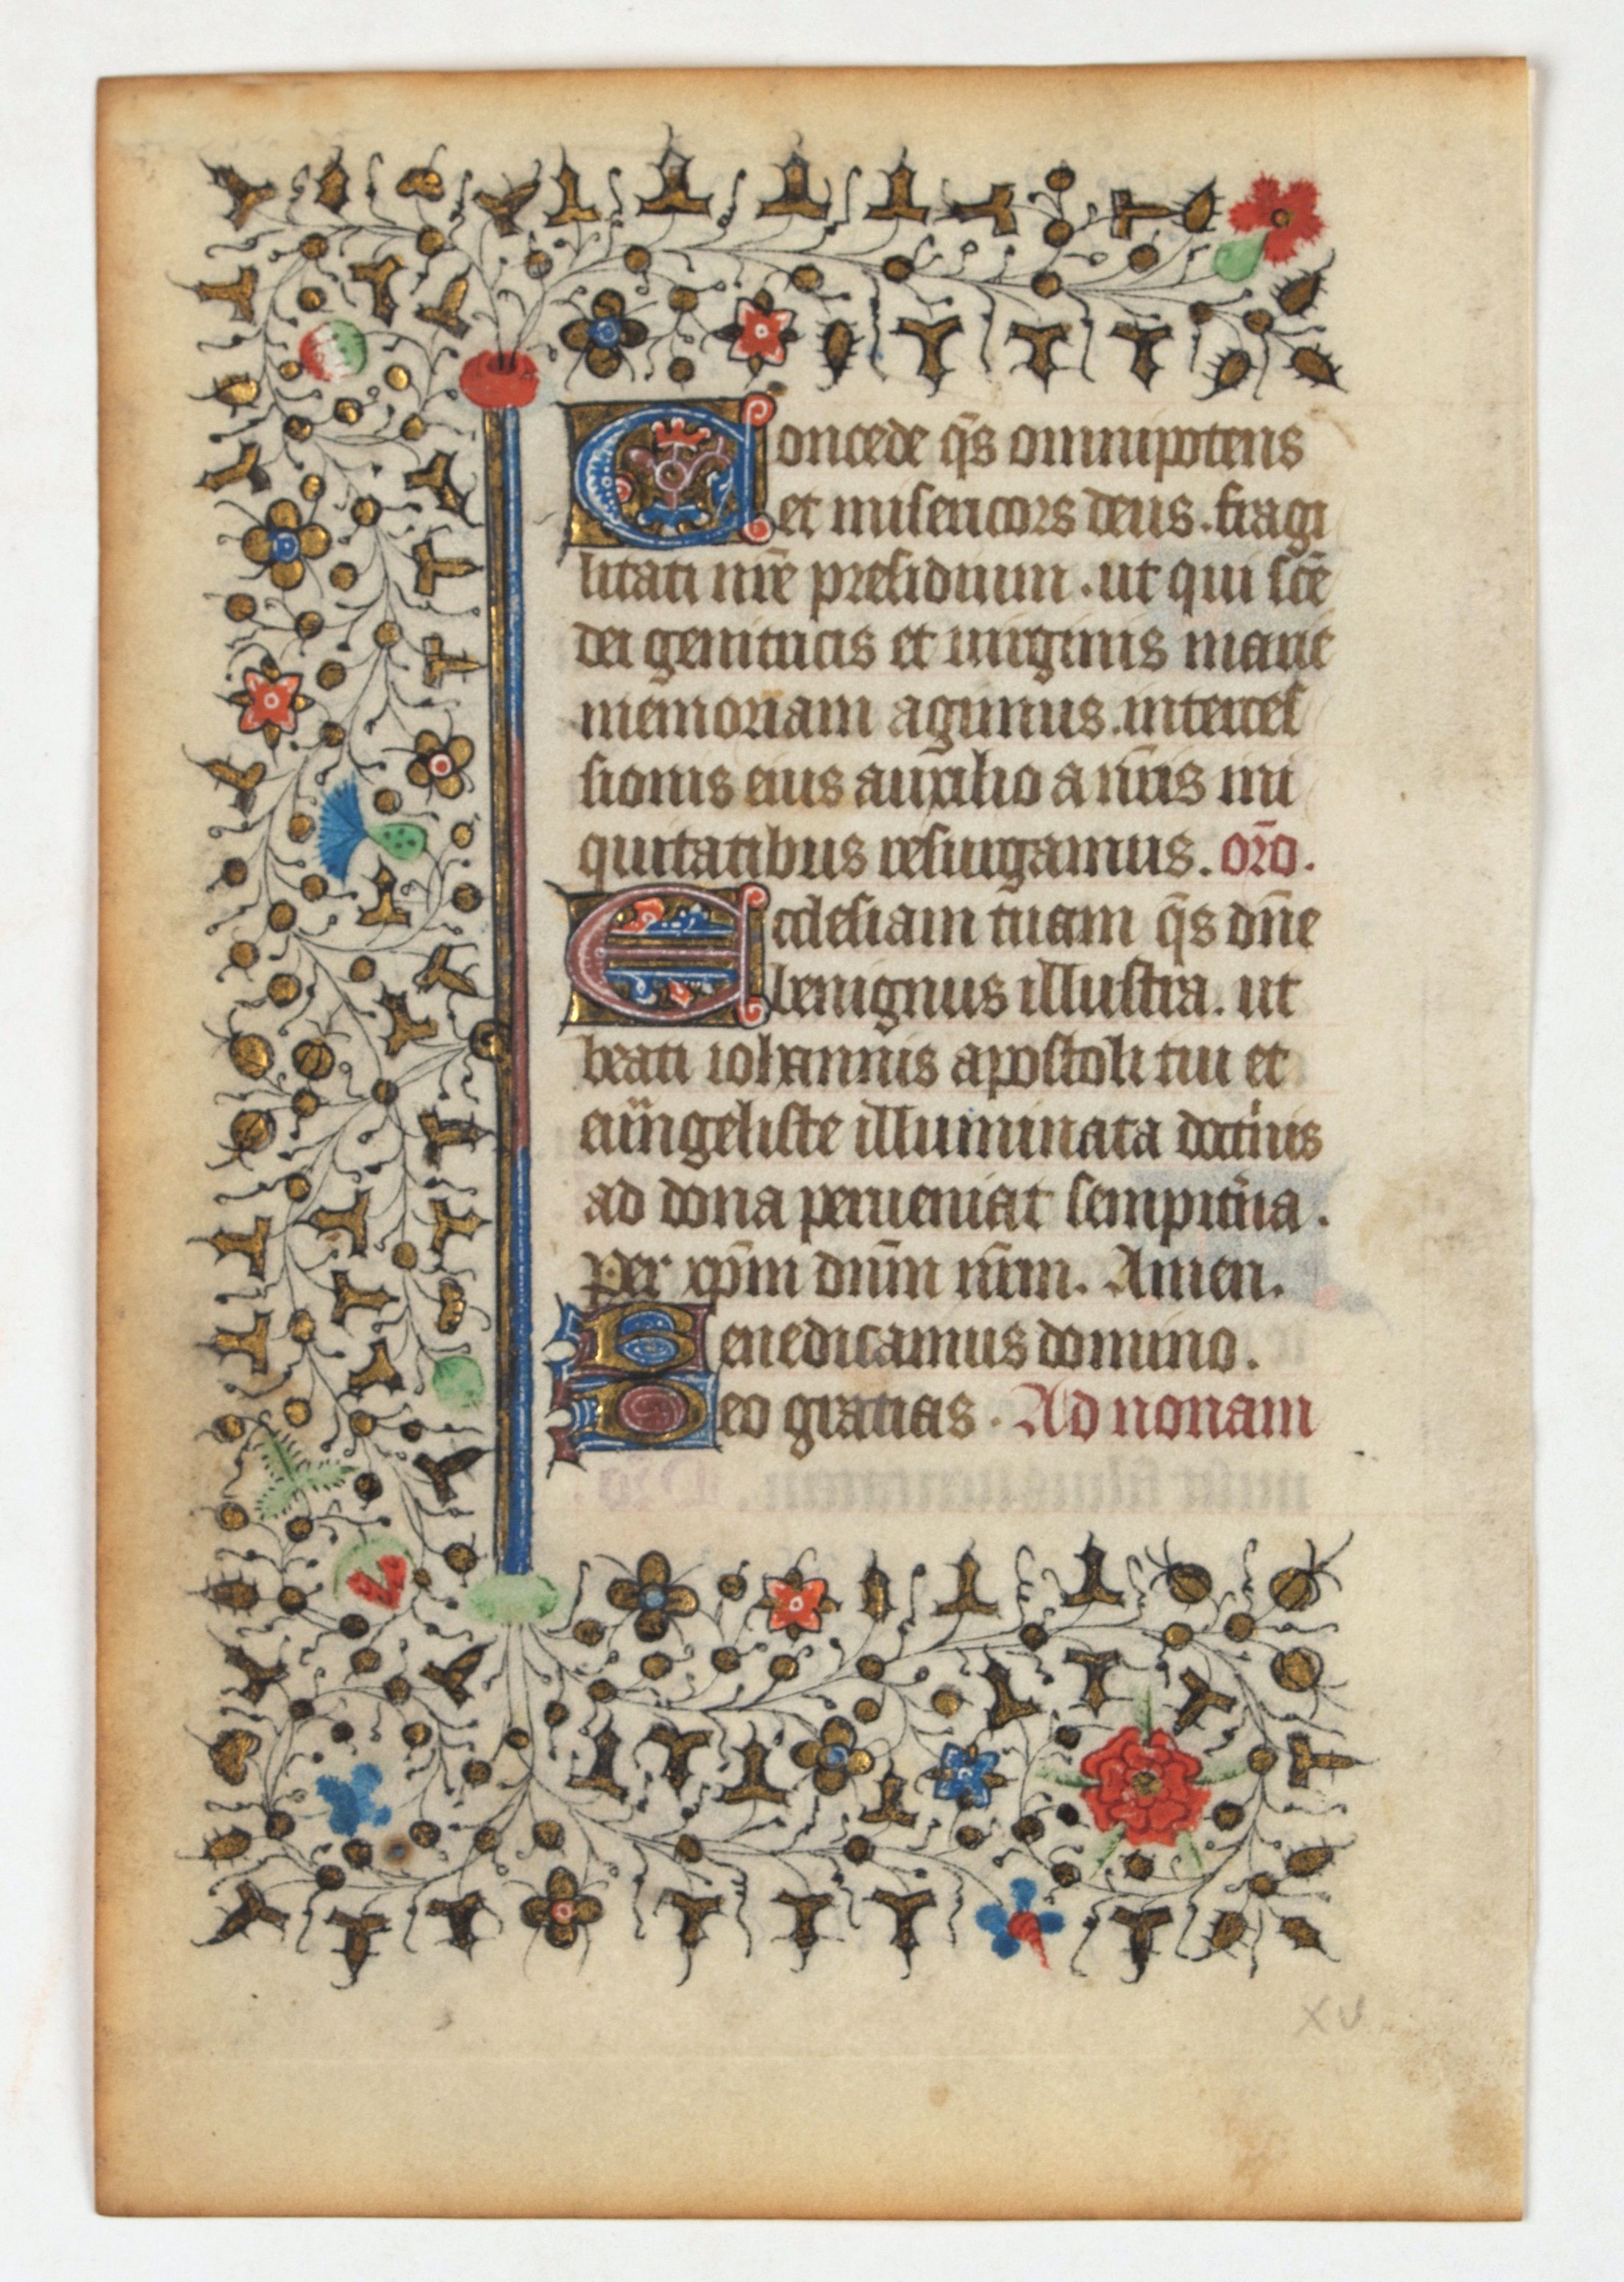 Concede q̄s omnipotens
et misericors deus. fragi
litati nr̄e presidium. ut qui sc̄e
dei genitricis et uirginis marie
memoriam agimus. interces
sionis eius auxilio a nr̄is ini
quitatibus resurgamus. or̄o.
Ecclesiam tuam q̄s dn̄e
benignus illustra. ut
beati iohannis apostoli tui et
eūngeliste illuminata doct̾nis
ad dona perueniat sempit̾na.
per xp̄m dn̄m nr̄m. Amen.
Benedicamus domino.
Deo gratias. Ad nonam
xv